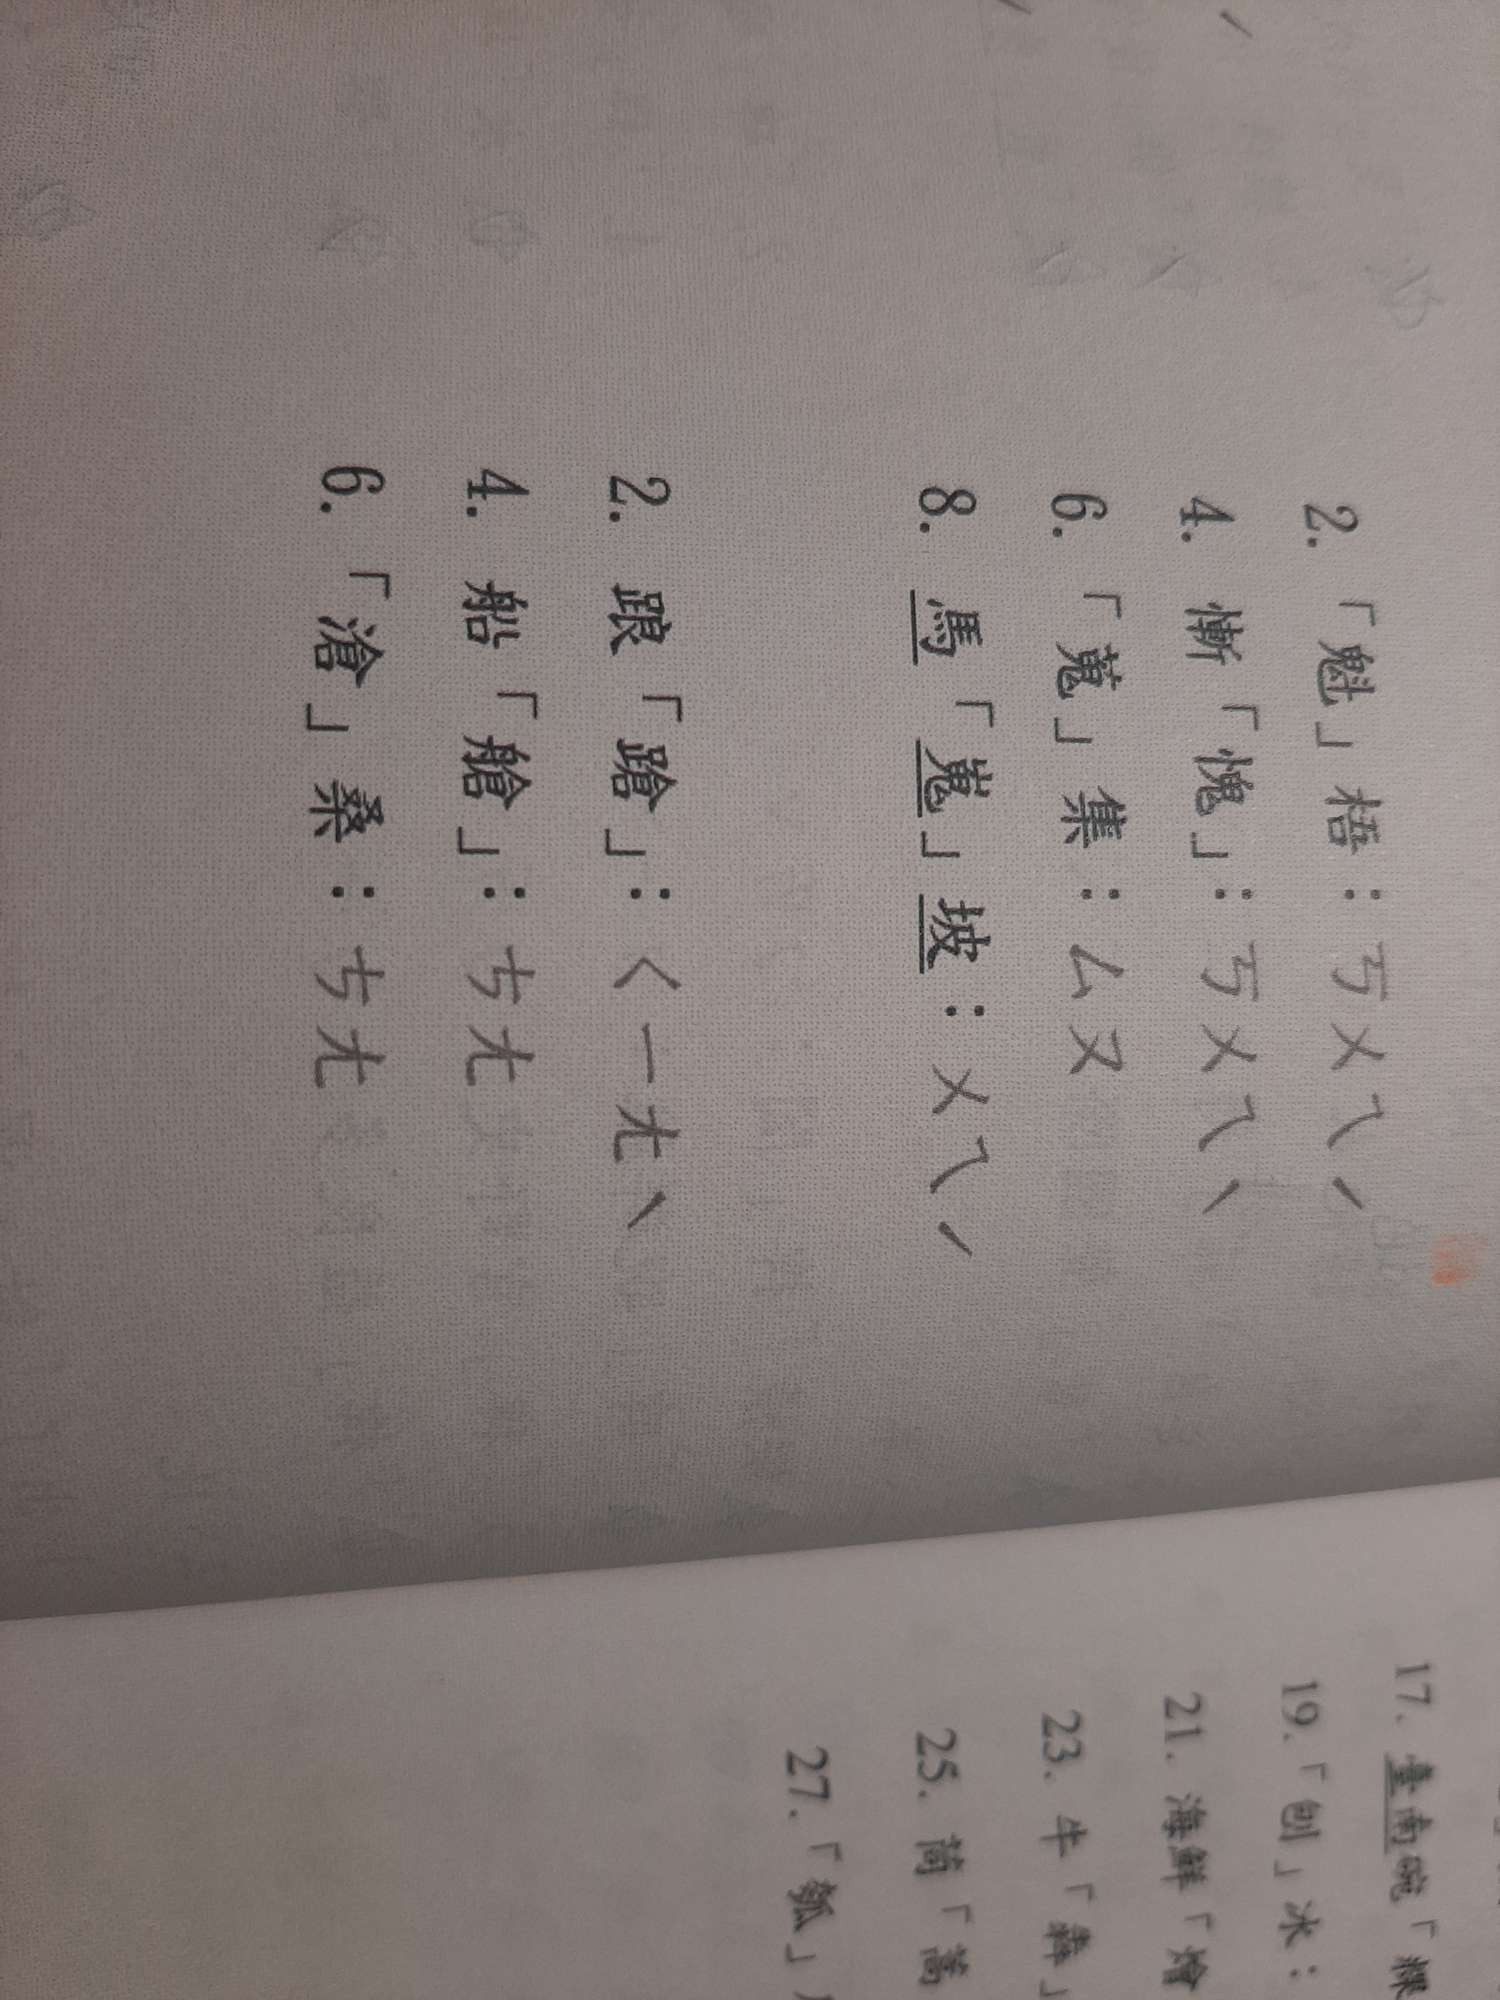 2.「魁」梧：ㄎㄨㄟˊ
4. 慚「愧」：ㄎㄨㄟˋ
6.「蒐」集：ㄙㄡ
8. 馬「嵬」坡：ㄨㄟˊ
2. 踉「蹌」：ㄑㄧㄤˋ
4. 船「艙」：ㄘㄤ
6.「滄」桑：ㄘㄤ
17. 臺南碗「粿
19.「刨」冰：
21. 海鮮「燴
23. 牛「
25. 茼「蒿
27.「瓠」